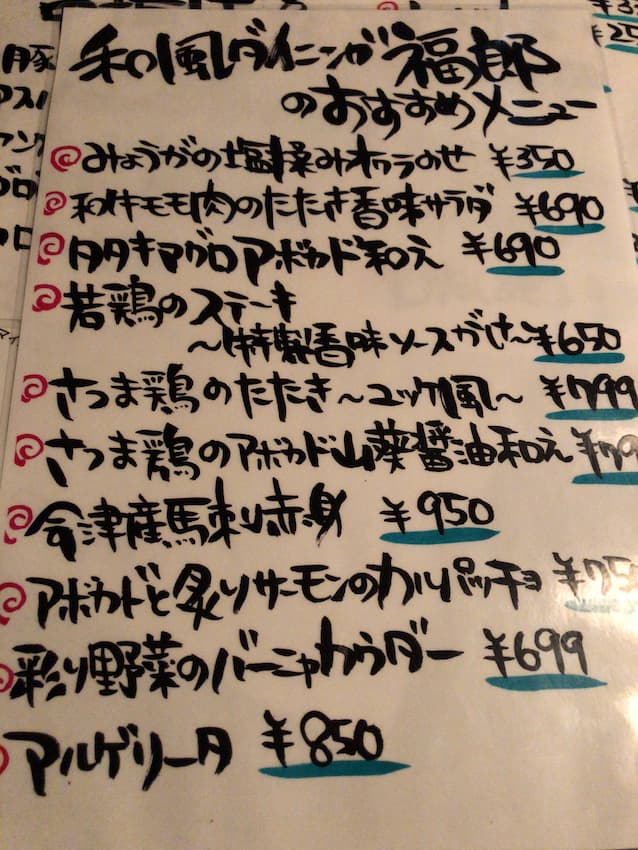 和風ダイニング 福郎
のおすすめメニュー
みょうがの塩揉みオクラのせ ¥350
和牛モモ肉のたたき香味サラダ ¥690
タタキマグロアボカド和え ¥690
若鶏のステーキ
～特製香味ソースがけ～¥650
さつま鶏のたたき～ユッケ風～ ¥799
さつま鶏のアボカド山葵醤油和え ¥79
会津産馬刺し赤身 ¥950
アボカドと炙りサーモンのカルパッチョ ¥750
彩り野菜のバーニャカウダー ¥699
アルゲリータ ¥850